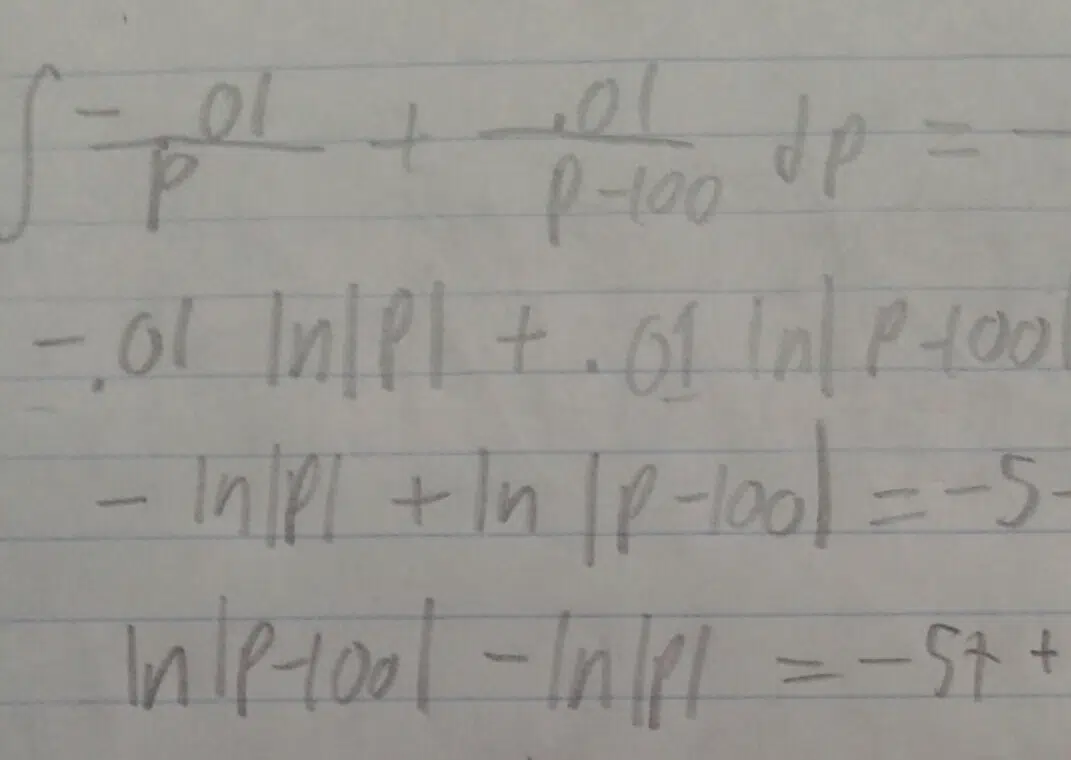 ∫ -.01/p + .01/(p-100) dp = -
-.01 ln|p| + .01 ln|p-100|
- ln|p| + ln|p-100| = -5
ln|p-100| - ln|p| = -5t +